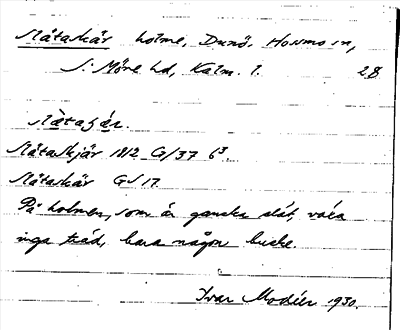 Nåtaskär holme, Dunö, Hossmo sn,
S. Möre hd, Kalm. l. 28
Nåtaskjär 1812 G/37 6³.
Nåtaskär GS 17.
På holmen, som är ganska slät, växa
inga träd, bara någon buske.
Ivar Modéer 1930.